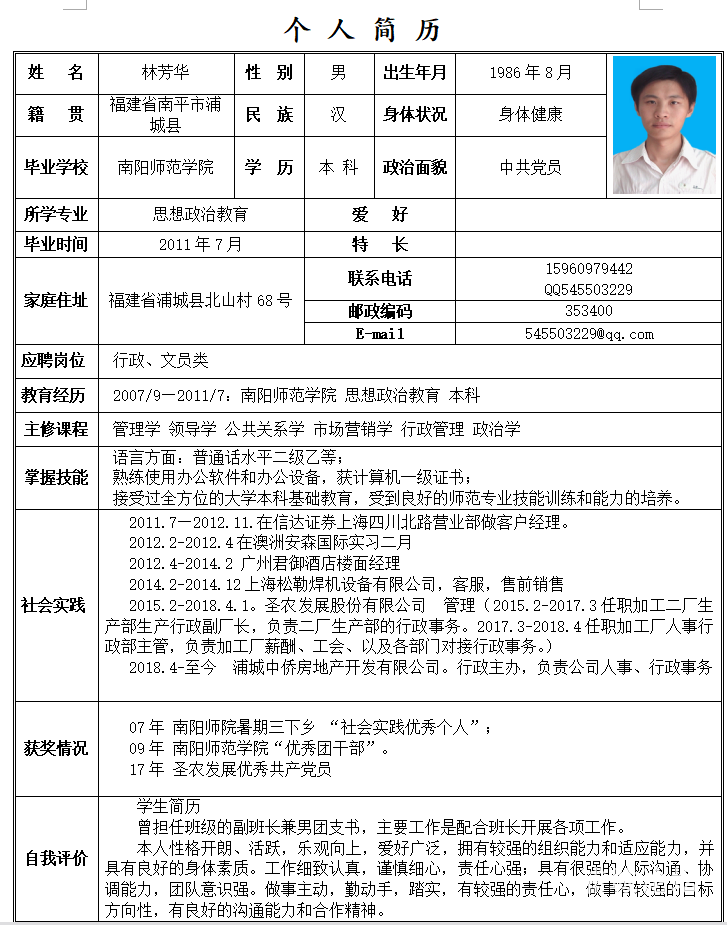 个 人 简 历
姓 名 林芳华 性 别 男 出生年月 1986年8月
籍 贯 福建省南平市浦城县 民 族 汉 身体状况 身体健康
毕业学校 南阳师范学院 学 历 本 科 政治面貌 中共党员
所学专业 思想政治教育 爱 好
毕业时间 2011年7月 特 长
家庭住址 福建省浦城县北山村68号 联系电话 15960979442
QQ545503229
邮政编码 353400
E-mail 545503229@qq.com
应聘岗位 行政、文员类
教育经历 2007/9—2011/7：南阳师范学院 思想政治教育 本科
主修课程 管理学 领导学 公共关系学 市场营销学 行政管理 政治学
掌握技能 语言方面：普通话水平二级乙等；
熟练使用办公软件和办公设备，获计算机一级证书；
接受过全方位的大学本科基础教育，受到良好的师范专业技能训练和能力的培养。
社会实践
2011.7—2012.11.在信达证券上海四川北路营业部做客户经理。
2012.2-2012.4在澳洲安森国际实习二月
2012.4-2014.2 广州君御酒店楼面经理
2014.2-2014.12上海松勒焊机设备有限公司，客服，售前销售
2015.2-2018.4.1。圣农发展股份有限公司 管理（2015.2-2017.3任职加工二厂生
产部生产行政副厂长，负责二厂生产部的行政事务。2017.3-2018.4任职加工厂人事行
政部主管，负责加工厂薪酬、工会、以及各部门对接行政事务。）
2018.4-至今 浦城中侨房地产开发有限公司。行政主办，负责公司人事、行政事务
获奖情况
07年 南阳师院暑期三下乡 “社会实践优秀个人”；
09年 南阳师范学院“优秀团干部”。
17年 圣农发展优秀共产党员
自我评价
学生简历
曾担任班级的副班长兼男团支书，主要工作是配合班长开展各项工作。
本人性格开朗、活跃，乐观向上，爱好广泛，拥有较强的组织能力和适应能力，并
具有良好的身体素质。工作细致认真，谨慎细心，责任心强；具有很强的人际沟通、协
调能力，团队意识强。做事主动，勤动手，踏实，有较强的责任心，做事有较强的目标
方向性，有良好的沟通能力和合作精神。